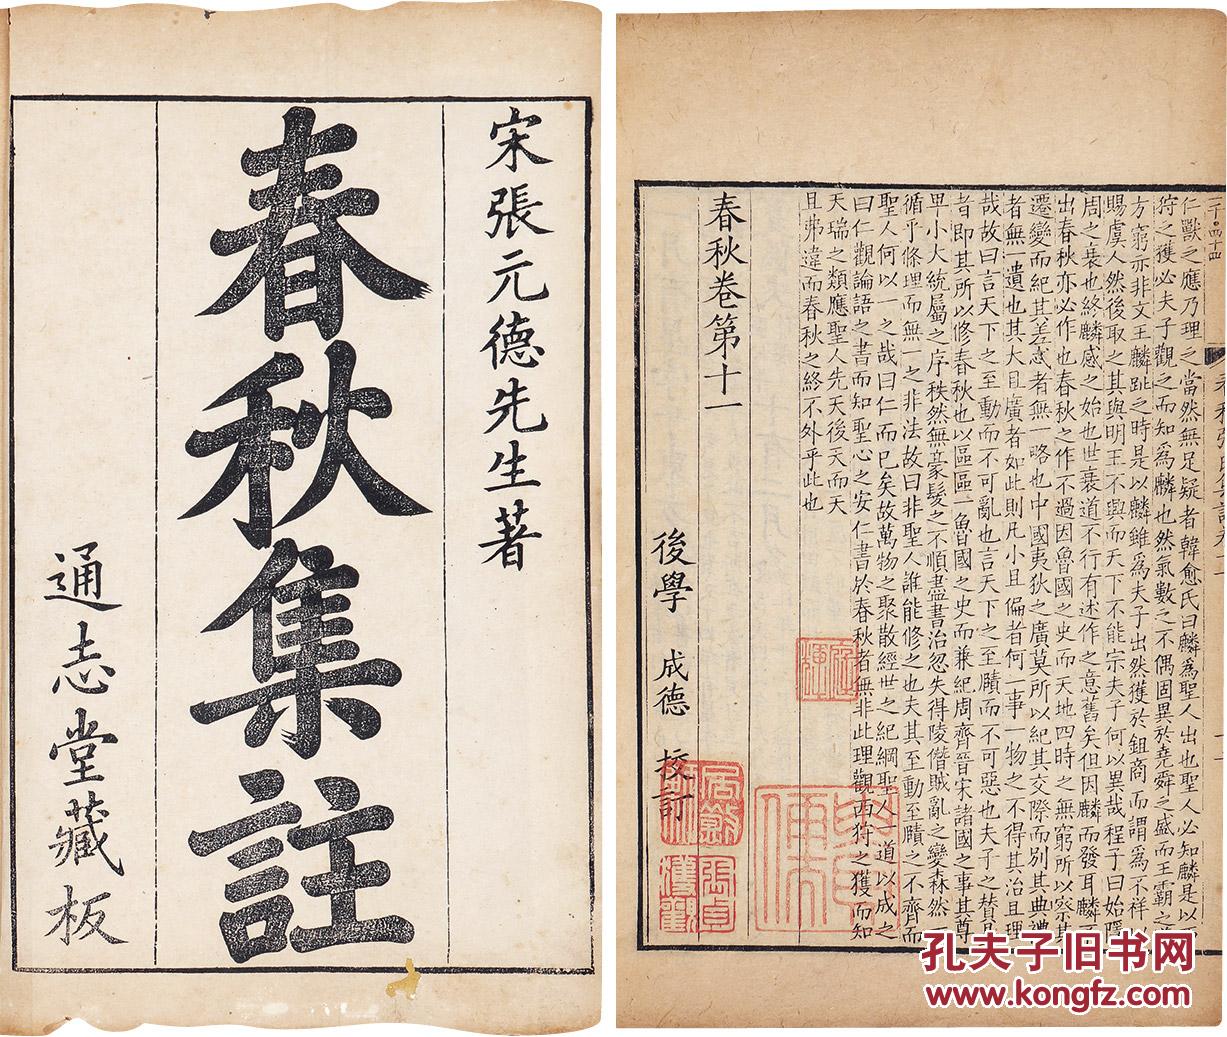 宋張元德先生著
春秋集註
通志堂藏板
仁獸之應乃理之當然無足疑者韓愈氏曰麟爲聖人出也聖人必知麟是以
狩之獲必夫子觀之而知爲麟也然氣數之不偶固異於堯舜之盛而王霸之
方窮亦非文王麟趾之時是以麟雖爲夫子出然獲於鉏商而謂爲不祥以
賜虞人然後取之其與明王不興而天下不能宗夫子何以異哉程子曰始隱
周之衰也終麟感之始也世衰道不行有述作之意舊矣但因麟而發耳麟不
出春秋亦必作也春秋之作不過因魯國之史而天地四時之無窮所以察其
遷變而紀其差忒者無一略也中國夷狄之廣莫所以紀其交際而別其典禮
者無一遺也其大且廣者如此則凡小且偏者何一事一物之不得其治且理
哉故曰言天下之至動而不可亂也言天下之至賾而不可惡也夫子之贊易
者即其所以修春秋也以區區一魯國之史而兼紀周齊晉宋諸國之事其尊
卑小大統屬之序秩然無豪髮之不順盡書治忽失得陵僭賊亂之變森然一
循乎條理而無一之非法故曰非聖人誰能修之也夫其至動至賾之不齊而
聖人何以一之哉曰仁而已矣故萬物之聚散經世之紀綱聖人一道以成之
曰仁觀論語之書而知聖心之安仁書於春秋者無非此理觀西狩之獲而知
天瑞之類應聖人先天後天而天
且弗違而春秋之終不外乎此也
春秋卷第十一
後學 成德 校訂
孔夫子旧书网
www.kongfz.com